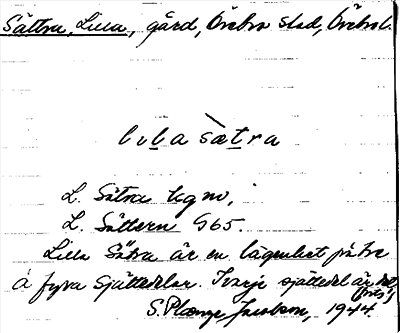 Sättra, Lilla, gård, Örebro stad, Örebro l.
lıla sætra
L. Sätra tgnv,
L. Sättern G65.
Lilla Sätra är en lägenhet på tre
à fyra sjättedelar. Varje sjättedel är
S. Plænge Jacobson, 1944.